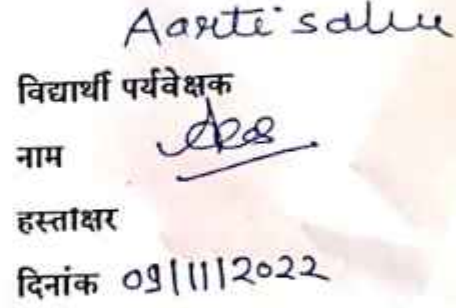 Aarti sahu
विद्यार्थी पर्यवेक्षक
नाम
हस्ताक्षर
दिनांक 09/11/2022